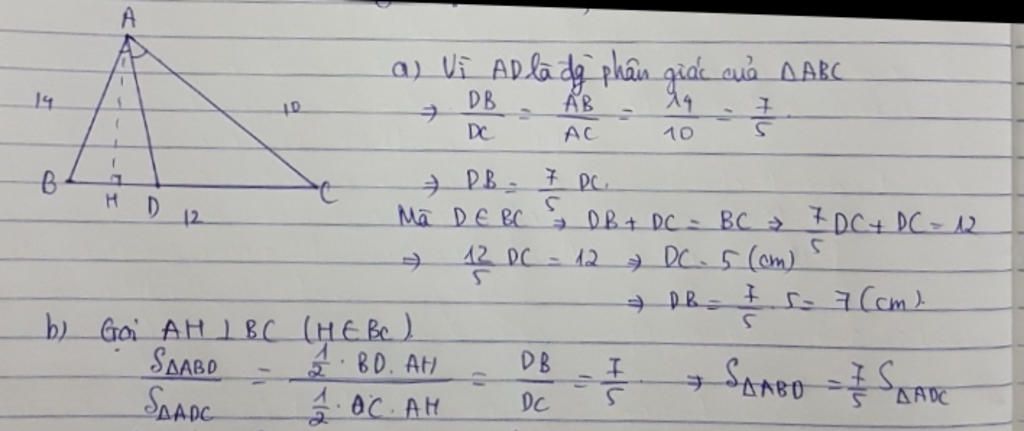 A
14
10
B
H
D
C
12
a) Vì AD là đg phân giác của ΔABC
⇒ DB/DC = AB/AC = 14/10 = 7/5
⇒ DB = 7/5 DC.
Mà D ∈ BC ⇒ DB + DC = BC ⇒ 7/5 DC + DC = 12
⇒ 12/5 DC = 12 ⇒ DC = 5 (cm)
⇒ DB = 7/5 . 5 = 7 (cm).
b) Gọi AH ⊥ BC (H ∈ BC)
S△ABD/S△ADC = (1/2 . BD . AH)/(1/2 . DC . AH) = DB/DC = 7/5 ⇒ S△ABD = 7/5 S△ADC